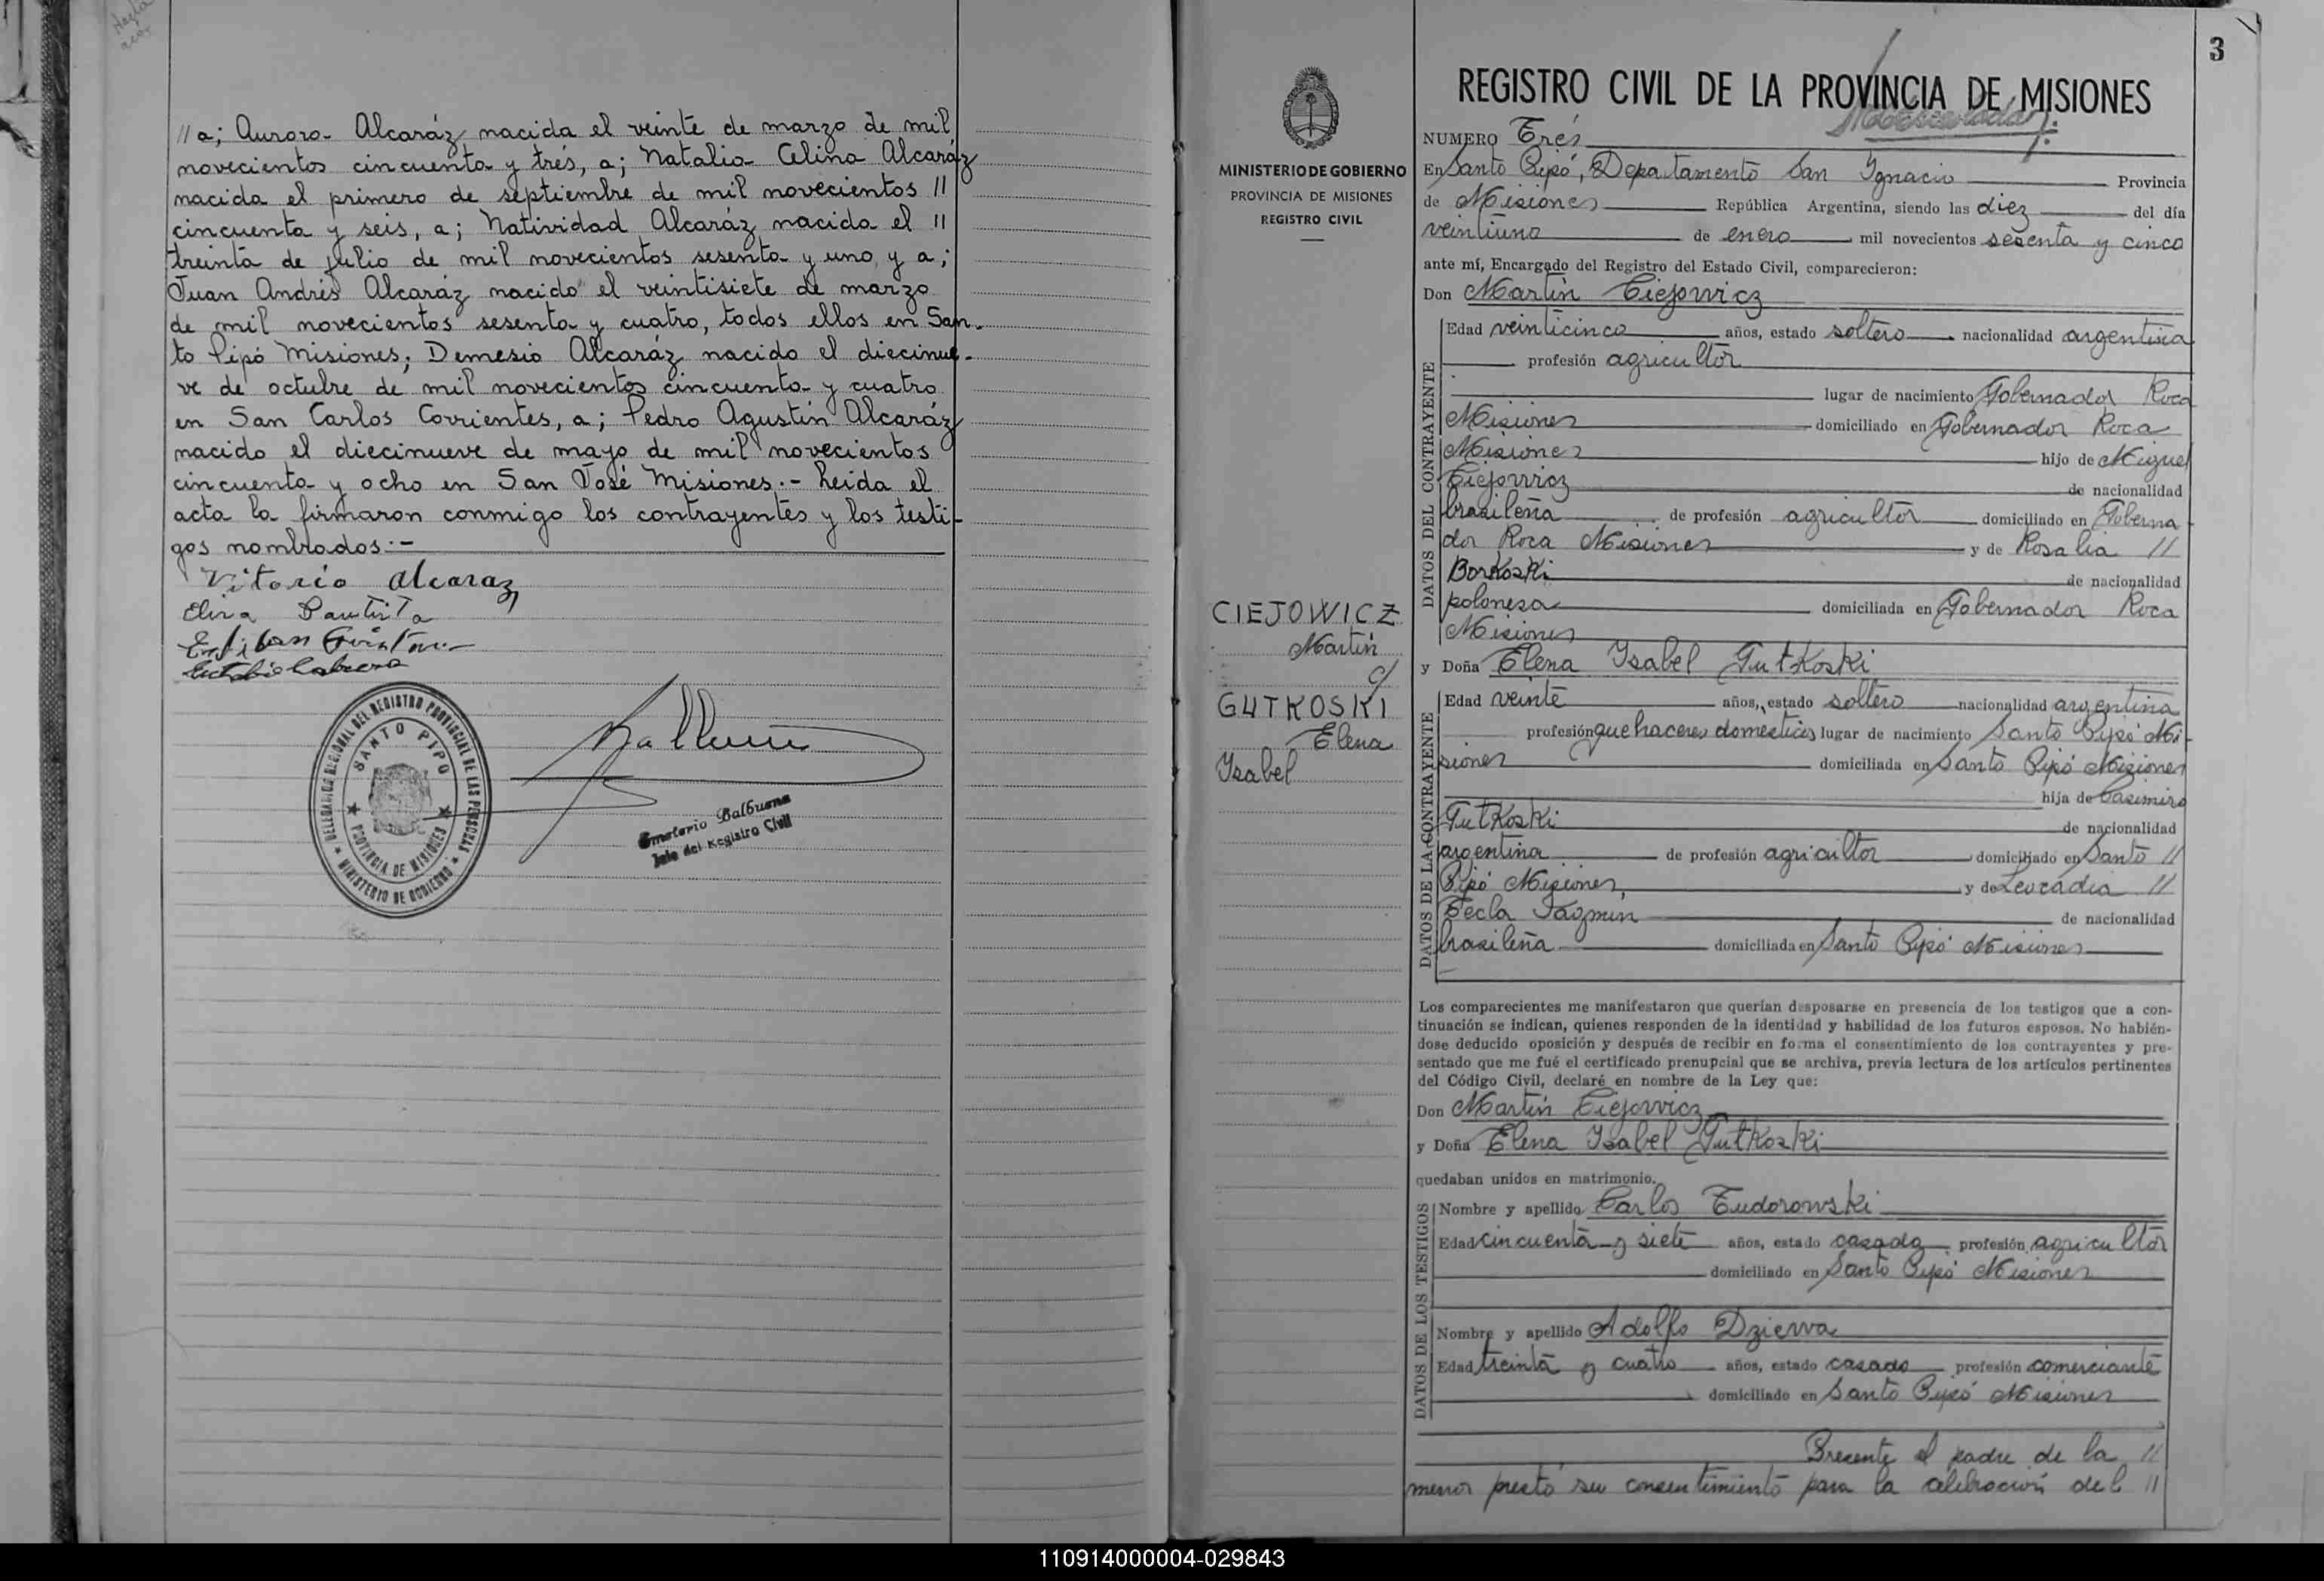 // a; Aurora Alcaráz nacida el veinte de marzo de mil
novecientos cincuenta y trés, a; Natalia Celina Alcaráz
nacida el primero de septiembre de mil novecientos //
cincuenta y seis, a; Natividad Alcaráz nacida el //
treinta de julio de mil novecientos sesenta y uno, y a;
Juan Andrés Alcaráz nacido el veintisiete de marzo
de mil novecientos sesenta y cuatro, todos ellos en San-
to Pipó Misiones; Demesio Alcaráz nacido el diecinue-
ve de octubre de mil novecientos cincuenta y cuatro
en San Carlos Corrientes, a; Pedro Agustín Alcaráz
nacido el diecinueve de mayo de mil novecientos
cincuenta y ocho en San José Misiones.- Leida el
acta la firmaron conmigo los contrayentes y los testi-
gos nombrados.-
Vitorio Alcaraz
Elisa Bautista
DELEGACION REGIONAL DEL REGISTRO PROVINCIAL DE LAS PERSONAS
SANTO PIPO
PROVINCIA DE MISIONES
MINISTERIO DE GOBIERNO
Emeterio Balbuena
Jefe del Registro Civil
3
MINISTERIO DE GOBIERNO
PROVINCIA DE MISIONES
REGISTRO CIVIL
CIEJOWICZ
Martín
c/
GUTKOSKI
Elena
Isabel
REGISTRO CIVIL DE LA PROVINCIA DE MISIONES
NUMERO Trés
En Santo Pipó, Departamento San Ignacio Provincia
de Misiones República Argentina, siendo las diez del día
veintiuno de enero mil novecientos sesenta y cinco
ante mí, Encargado del Registro del Estado Civil, comparecieron:
Don Martín Ciejowicz
DATOS DEL CONTRAYENTE
Edad veinticinco años, estado soltero nacionalidad argentina
profesión agricultor
lugar de nacimiento Gobernador Roca
Misiones domiciliado en Gobernador Roca
Misiones hijo de Miguel
Ciejowicz de nacionalidad
brasileña de profesión agricultor domiciliado en Goberna-
dor Roca Misiones y de Rosalia //
Borkoski de nacionalidad
polonesa domiciliada en Gobernador Roca
Misiones
y Doña Elena Isabel Gutkoski
DATOS DE LA CONTRAYENTE
Edad veinte años, estado soltero nacionalidad argentina
profesión quehaceres domesticos lugar de nacimiento Santo Pipó Mi-
siones domiciliada en Santo Pipó Misiones
hija de Casimiro
Gutkoski de nacionalidad
argentina de profesión agricultor domiciliado en Santo //
Pipó Misiones, y de Leocadia //
Tecla Jazmin de nacionalidad
brasileña domiciliada en Santo Pipó Misiones
Los comparecientes me manifestaron que querían desposarse en presencia de los testigos que a con-
tinuación se indican, quienes responden de la identidad y habilidad de los futuros esposos. No habién-
dose deducido oposición y después de recibir en forma el consentimiento de los contrayentes y pre-
sentado que me fué el certificado prenupcial que se archiva, previa lectura de los artículos pertinentes
del Código Civil, declaré en nombre de la Ley que:
Don Martín Ciejowicz
y Doña Elena Isabel Gutkoski
quedaban unidos en matrimonio.
DATOS DE LOS TESTIGOS
Nombre y apellido Carlos Tudorowski
Edad cincuenta y siete años, estado casado profesión agricultor
domiciliado en Santo Pipó Misiones
Nombre y apellido Adolfo Dzierva
Edad treinta y cuatro años, estado casado profesión comerciante
domiciliado en Santo Pipó Misiones
Presente el padre de la //
menor prestó su consentimiento para la celebración del //
110914000004-029843